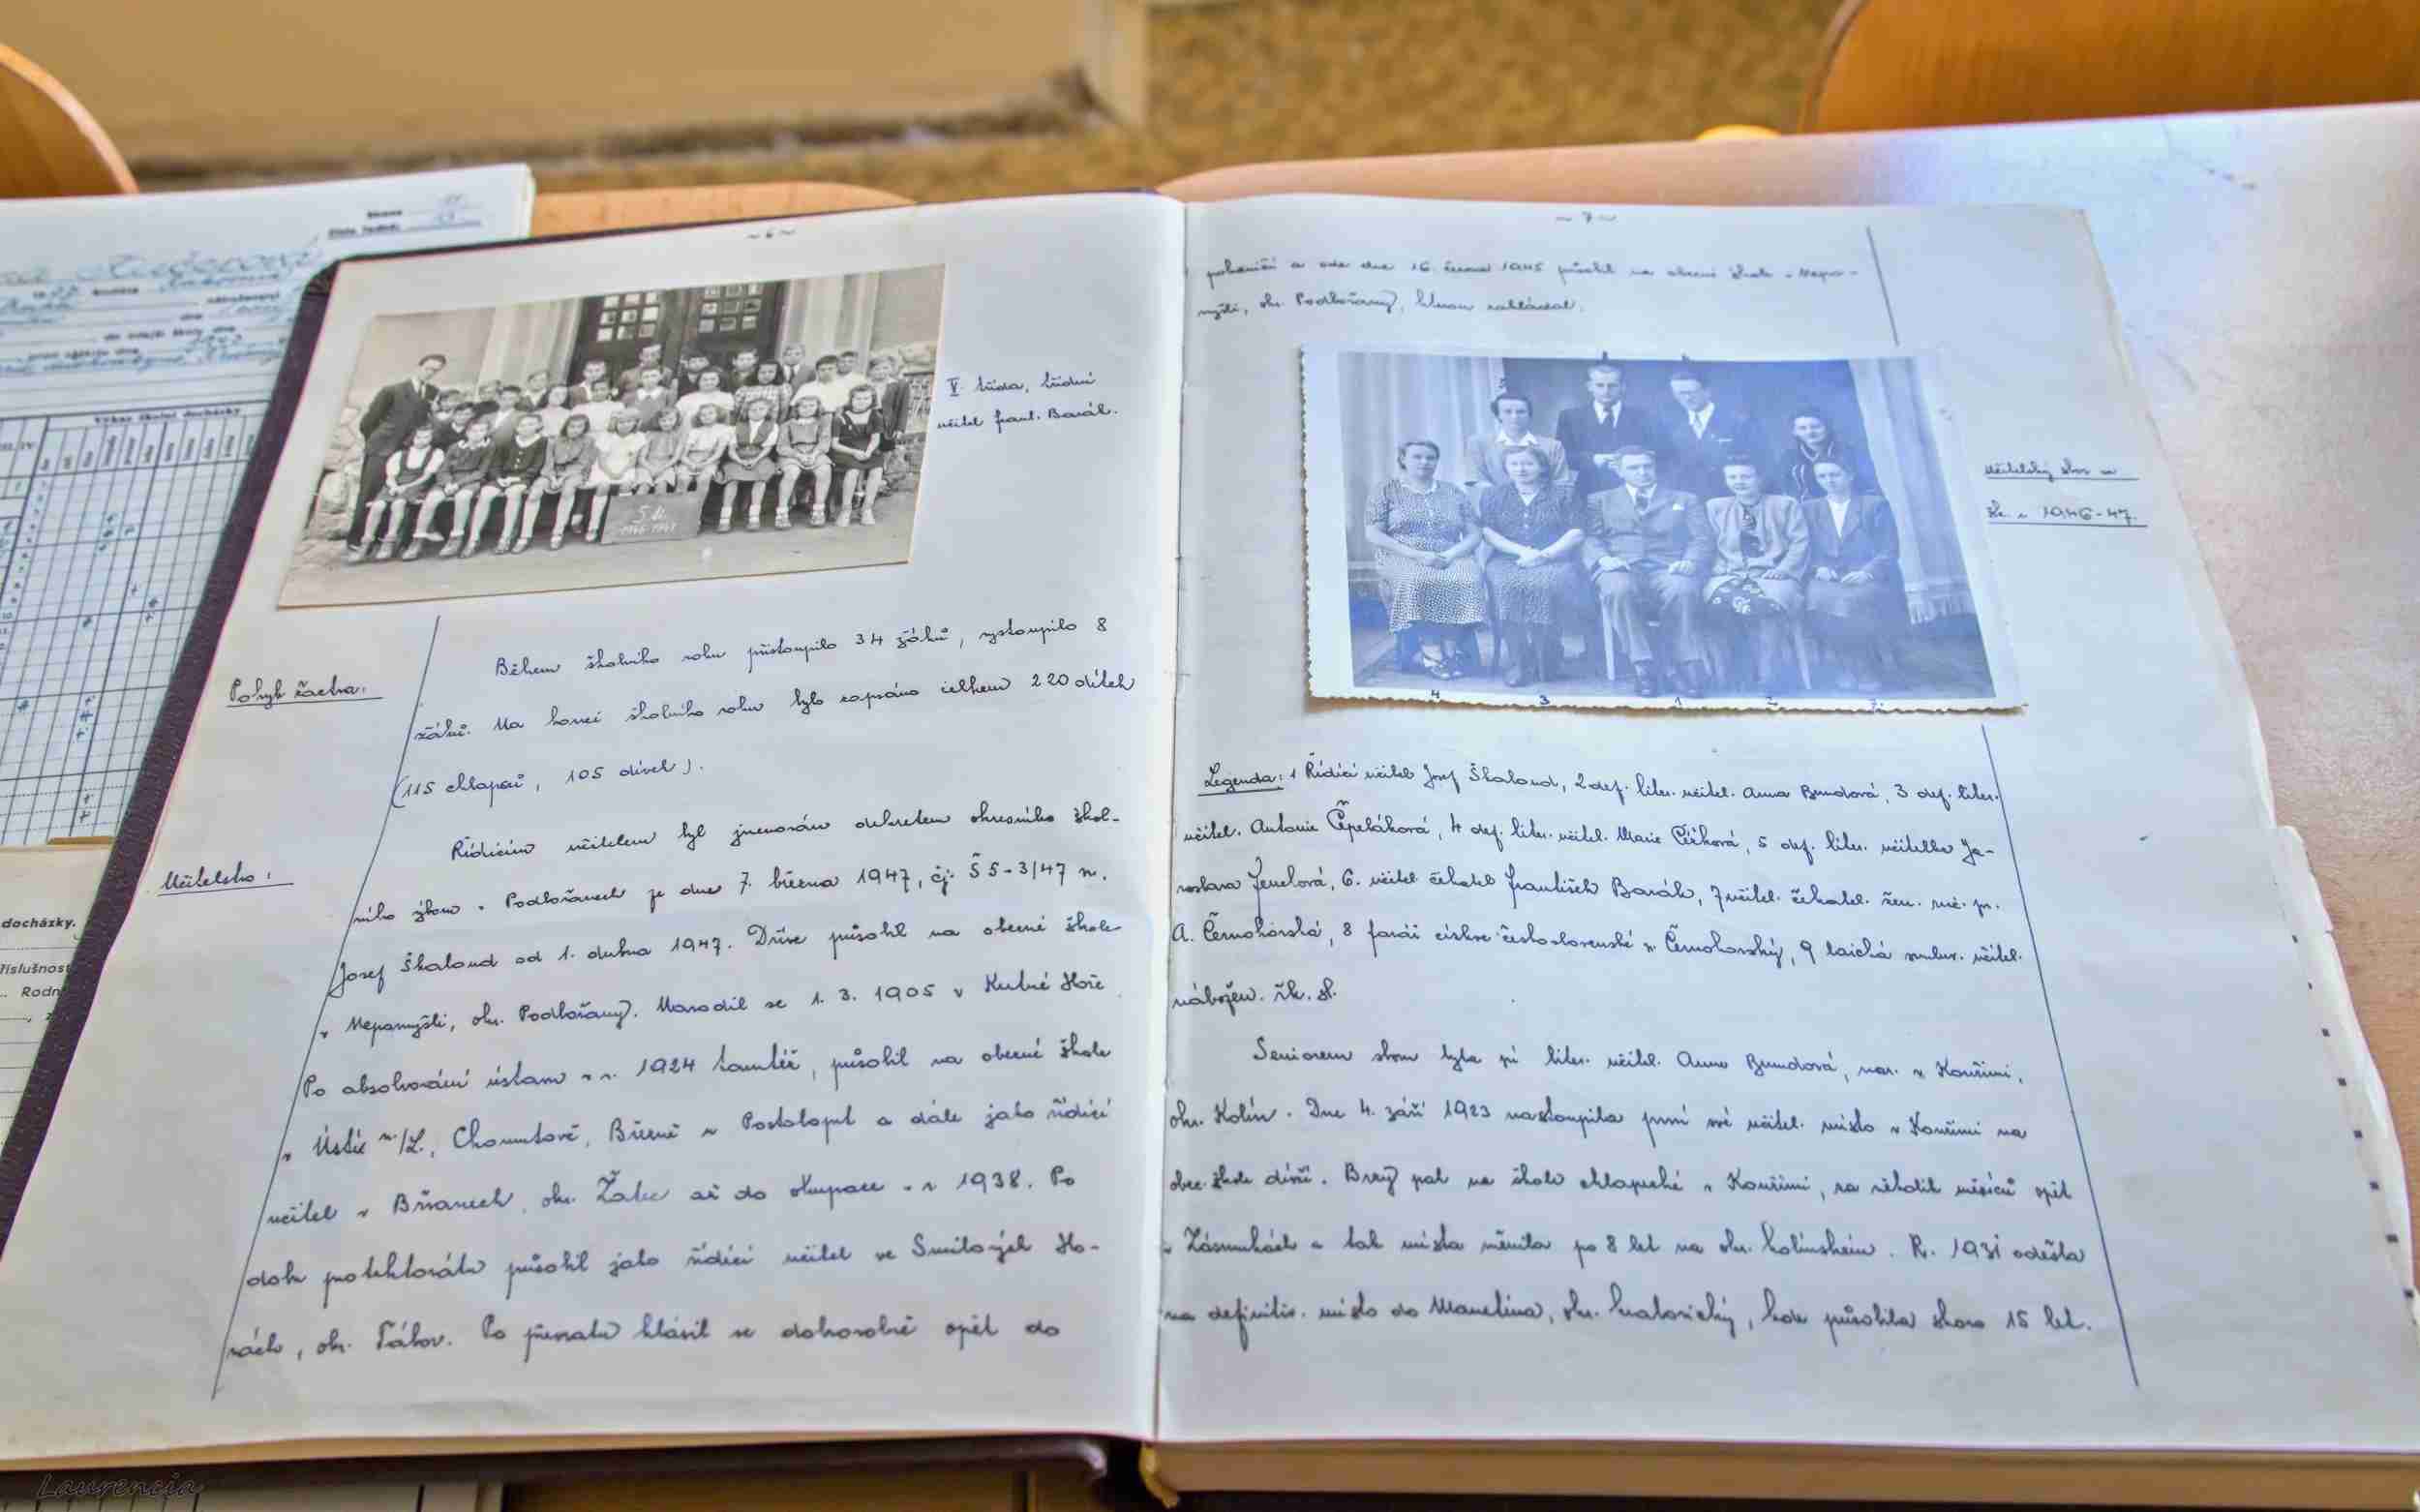 ~ 6 ~
V. třída, třídní
učitel Frant. Barák.
5. tř.
1946-1947
Pohyb žactva:
Během školního roku přistoupilo 34 žáků, vystoupilo 8
žáků. Na konci školního roku bylo zapsáno celkem 220 dítek
(115 chlapců, 105 dívek).
Učitelstvo:
Řídícím učitelem byl jmenován dekretem okresního škol-
ního výboru v Podbořanech ze dne 7. března 1947, čj. Š 5-3/47 n.
Josef Škaloud od 1. dubna 1947. Dříve působil na obecné škole
v Nepomyšli, okr. Podbořany. Narodil se 1. 3. 1905 v Kutné Hoře.
Po absolvování ústavu v r. 1924 tamtéž, působil na obecné škole
v Ústí n./L., Chomutově, Březně u Postoloprt a dále jako řídící
učitel v Břvanech, okr. Žatec až do okupace v r. 1938. Po
dobu protektorátu působil jako řídící učitel ve Smilových Ho-
rách, okr. Tábor. Po převratu hlásil se dobrovolně opět do
~ 7 ~
pohraničí a ode dne 16. června 1945 působil na obecné škole v Nepo-
myšli, okr. Podbořany, kterou zakládal.
Učitelský sbor ve
šk. r. 1946-47.
4 3 1 2 7.
Legenda: 1 Řídící učitel Josef Škaloud, 2 def. liter. učitel. Anna Bundová, 3 def. liter.
učitel. Antonie Čepeláková, 4 def. liter. učitel. Marie Čížková, 5 def. liter. učitelka Ja-
roslava Jenelová, 6. učitel čekatel František Barák, 7 učitel. čekatel. žen. ruč. pr.
A. Černohorská, 8 farář církve československé V. Černohorský, 9 laická smluv. učitel.
nábožen. řk. sl.
Seniorem sboru byla pí liter. učitel. Anna Bundová, nar. v Kouřimi,
okr. Kolín. Dne 4. září 1923 nastoupila první své učitel. místo v Kouřimi na
obec. škole dívčí. Brzy pak na škole chlapecké v Kouřimi, za několik měsíců opět
v Zásmukách a tak místa měnila po 8 let na okr. kolínském. R. 1931 odešla
na definitiv. místo do Manětína, okr. kralovický, kde působila skoro 15 let.
docházky.
Rodn
Výkaz školní docházky
Laurencia